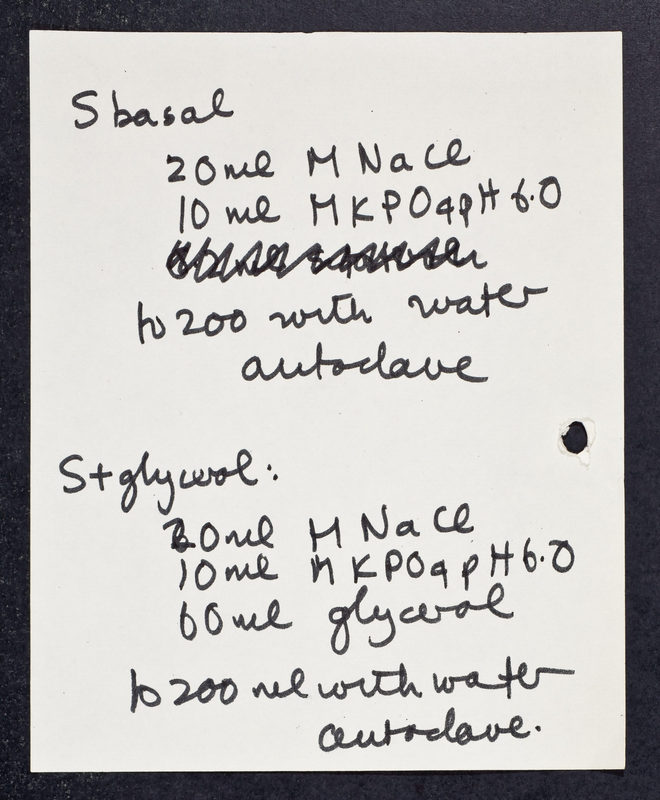 S basal
20 ml M NaCl
10 ml M KPO4 pH 6.0
to 200 with water
autoclave
S+glycerol:
20 ml M NaCl
10 ml M KPO4 pH 6.0
60 ml glycerol
to 200 ml with water
autoclave.